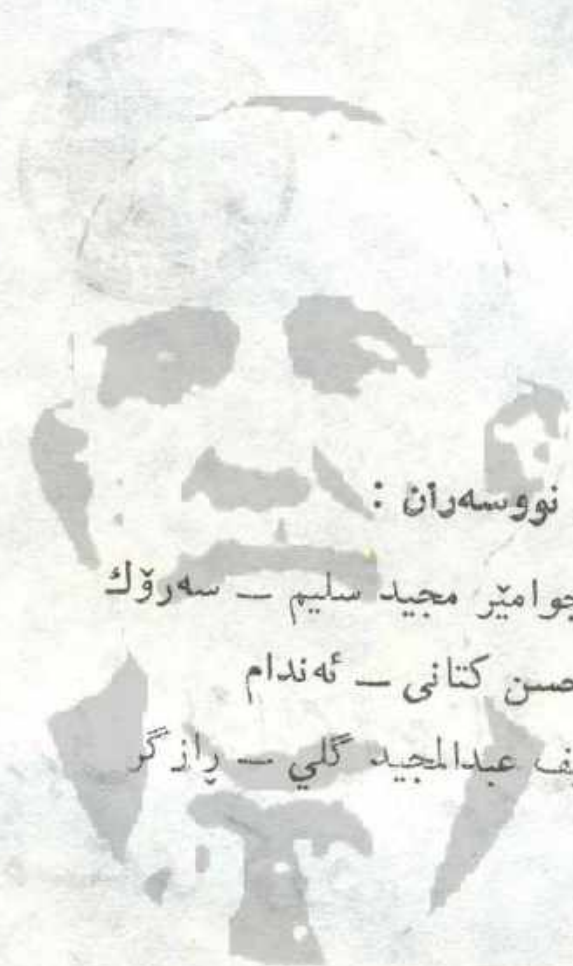 نووسەران :
جوامێر مجيد سليم — سەرۆك
حسن كتانى — ئەندام
عبدالمجيد گلي — ڕازگر